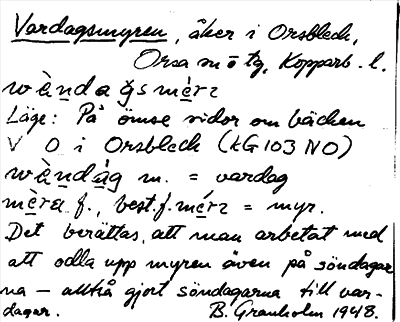 Vardagsmyren, åker i Orsbleck,
Orsa sn o tg, Kopparb. l.
wàndagsmèrɛ
Läge: På ömse sidor om bäcken
V O i Orsbleck (KG 103 NO)
wàndàg m. = vardag
mèra f., best. f. mérɛ = myr.
Det berättas, att man arbetat med
att odla upp myren även på söndagar
na — alltså gjort söndagarna till var-
dagar. B. Granholm 1948.